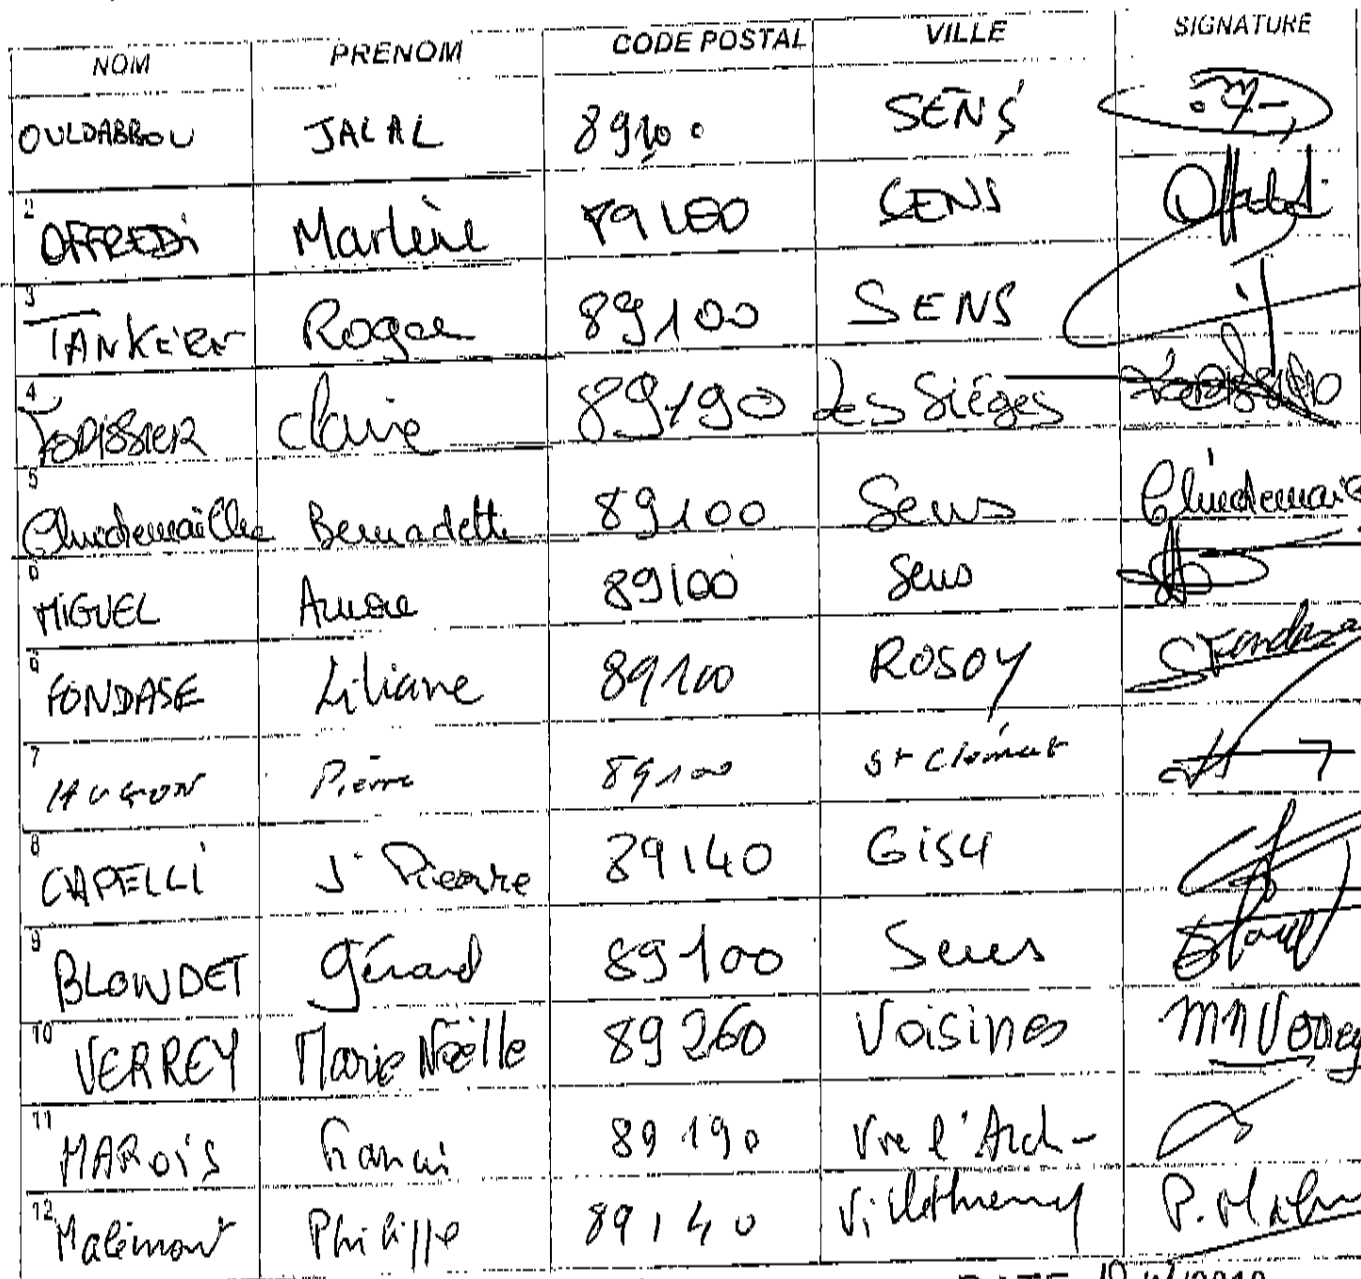 NOM PRENOM CODE POSTAL VILLE SIGNATURE
OULDABBOU JALAL 89100 SENS
2 OFFREDi Marlène 89100 SENS
3 TANKERE Roger 89100 SENS
4 Claire 89190 Les Sièges
5 Bernadette 89100 Sens
6 MIGUEL Aurore 89100 Sens
6 FONDASE Liliane 89100 ROSOY
7 HUGON Pierre 89100 St Clément
8 CAPELLi J Pierre 89140 Gisy
9 BLONDET Gérard 89100 Sens
10 VERREY Marie Noëlle 89260 Voisines MN Verrey
11 MAROiS Francis 89190 Vve l'Arch-
12 Malimont Philippe 89140 Villethierry